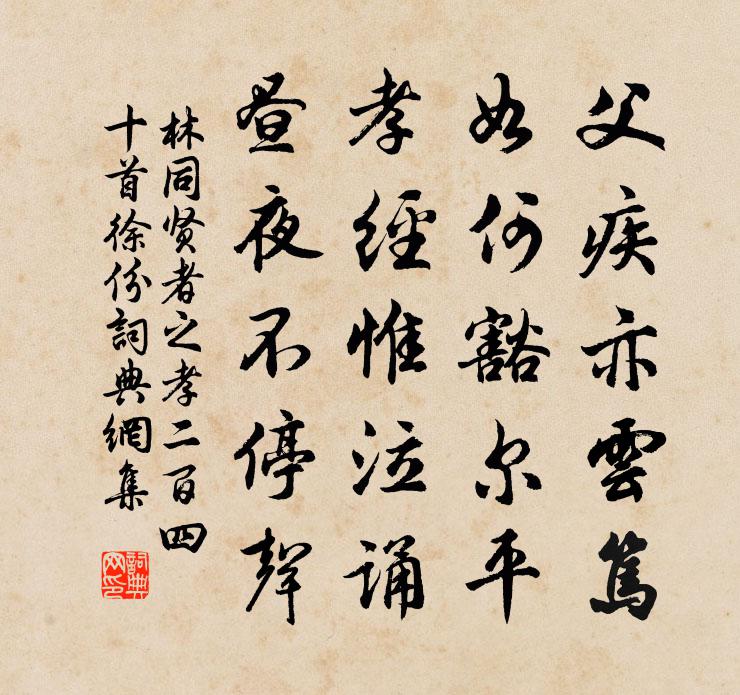 父疾亦雲篤
如何豁尔平
孝經惟泣誦
昼夜不停聲
林同贤者之孝二百四
十首徐份詞典網集
詞典
网印